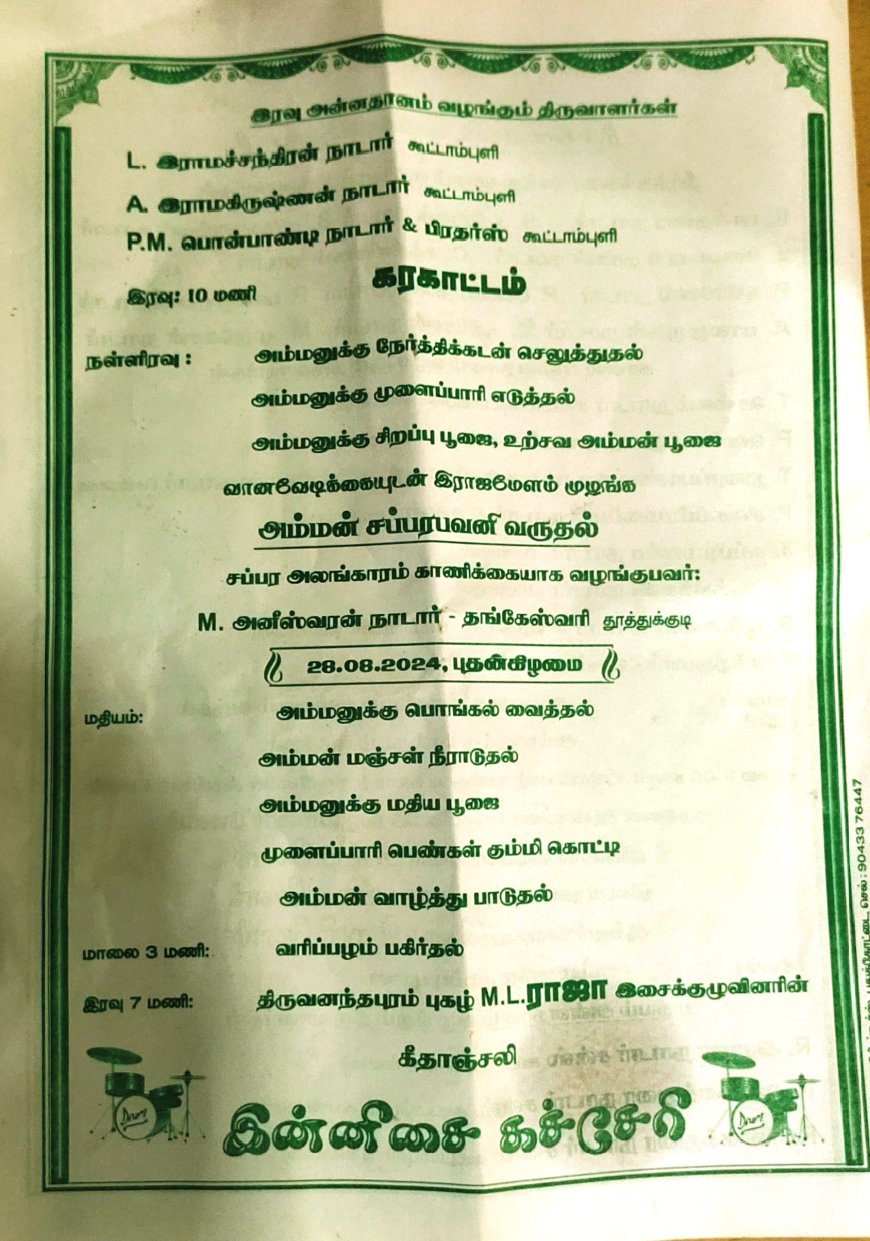 இரவு அன்னதானம் வழங்கும் திருவாளர்கள்
L. இராமச்சந்திரன் நாடார் கூட்டாம்புளி
A. இராமகிருஷ்ணன் நாடார் கூட்டாம்புளி
P.M. பொன்பாண்டி நாடார் & பிரதர்ஸ் கூட்டாம்புளி
இரவு: 10 மணி கரகாட்டம்
நள்ளிரவு : அம்மனுக்கு நேர்த்திக்கடன் செலுத்துதல்
அம்மனுக்கு முளைப்பாரி எடுத்தல்
அம்மனுக்கு சிறப்பு பூஜை, உற்சவ அம்மன் பூஜை
வானவேடிக்கையுடன் இராஜமேளம் முழங்க
அம்மன் சப்பரபவனி வருதல்
சப்பர அலங்காரம் காணிக்கையாக வழங்குபவர்:
M. அனீஸ்வரன் நாடார் - தங்கேஸ்வரி தூத்துக்குடி
28.08.2024, புதன்கிழமை
மதியம்: அம்மனுக்கு பொங்கல் வைத்தல்
அம்மன் மஞ்சள் நீராடுதல்
அம்மனுக்கு மதிய பூஜை
முளைப்பாரி பெண்கள் கும்மி கொட்டி
அம்மன் வாழ்த்து பாடுதல்
மாலை 3 மணி: வரிப்பழம் பகிர்தல்
இரவு 7 மணி: திருவனந்தபுரம் புகழ் M.L.ராஜா இசைக்குழுவினரின்
கீதாஞ்சலி
இன்னிசை கச்சேரி
செல் : 90433 76447